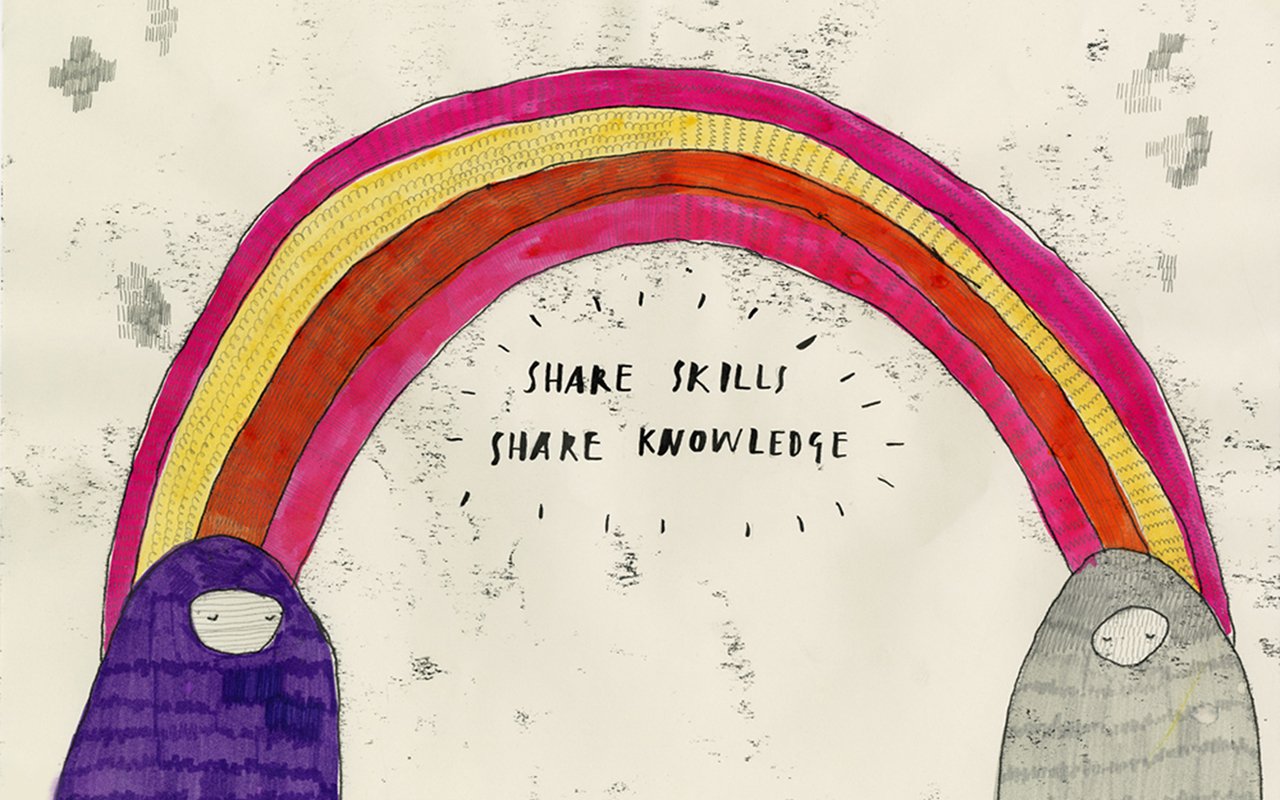 SHARE SKILLS
SHARE KNOWLEDGE